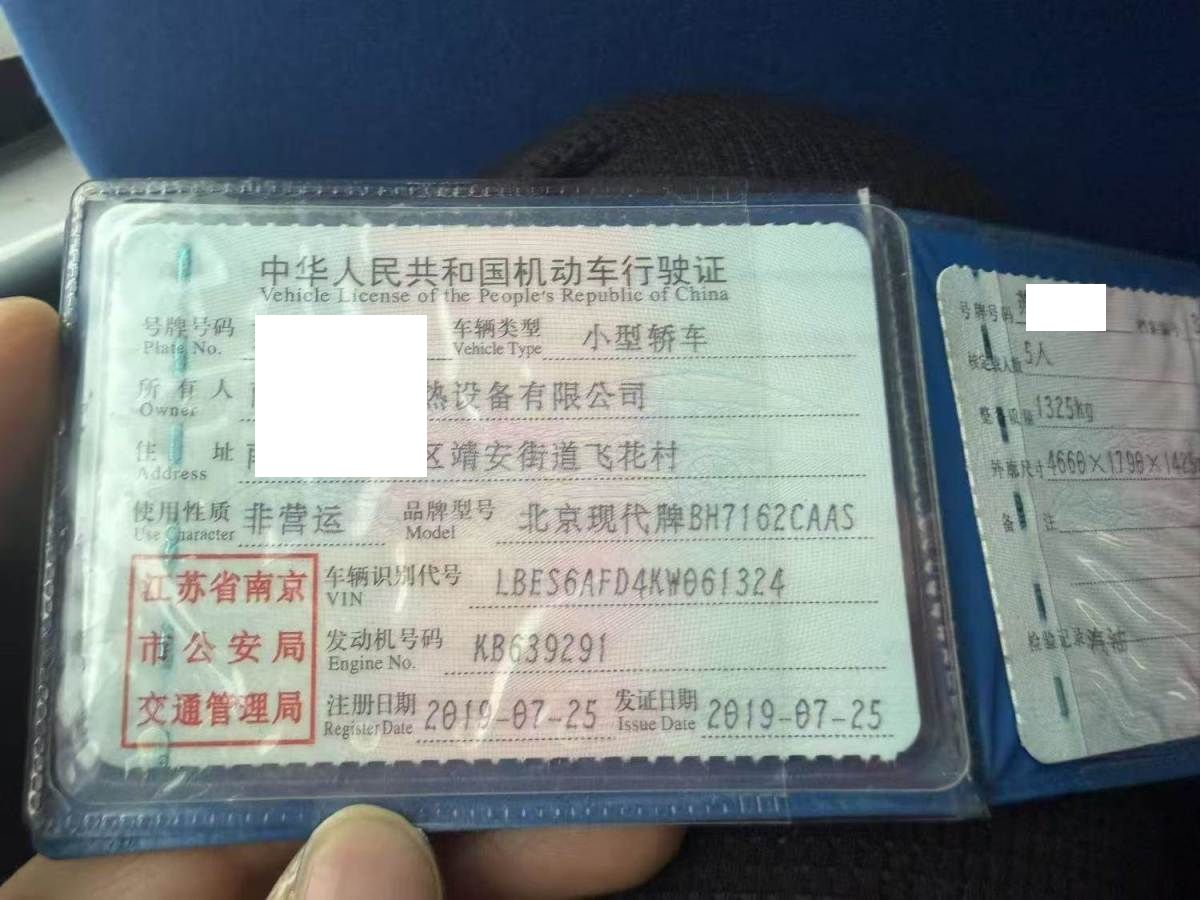 中华人民共和国机动车行驶证
Vehicle License of the People's Republic of China
号牌号码
Plate No.
车辆类型 小型轿车
Vehicle Type
所有人 热设备有限公司
Owner
住址 区靖安街道飞花村
Address
使用性质 非营运 品牌型号 北京现代牌BH7162CAAS
Use Character Model
江苏省南京
市公安局
交通管理局
车辆识别代号 LBES6AFD4KW061324
VIN
发动机号码 KB639291
Engine No.
注册日期 2019-07-25 发证日期 2019-07-25
Register Date Issue Date
号牌号码
核定载人数 5人
整备质量 1325kg
外廓尺寸 4660×1790×142
备注
检验记录 汽油